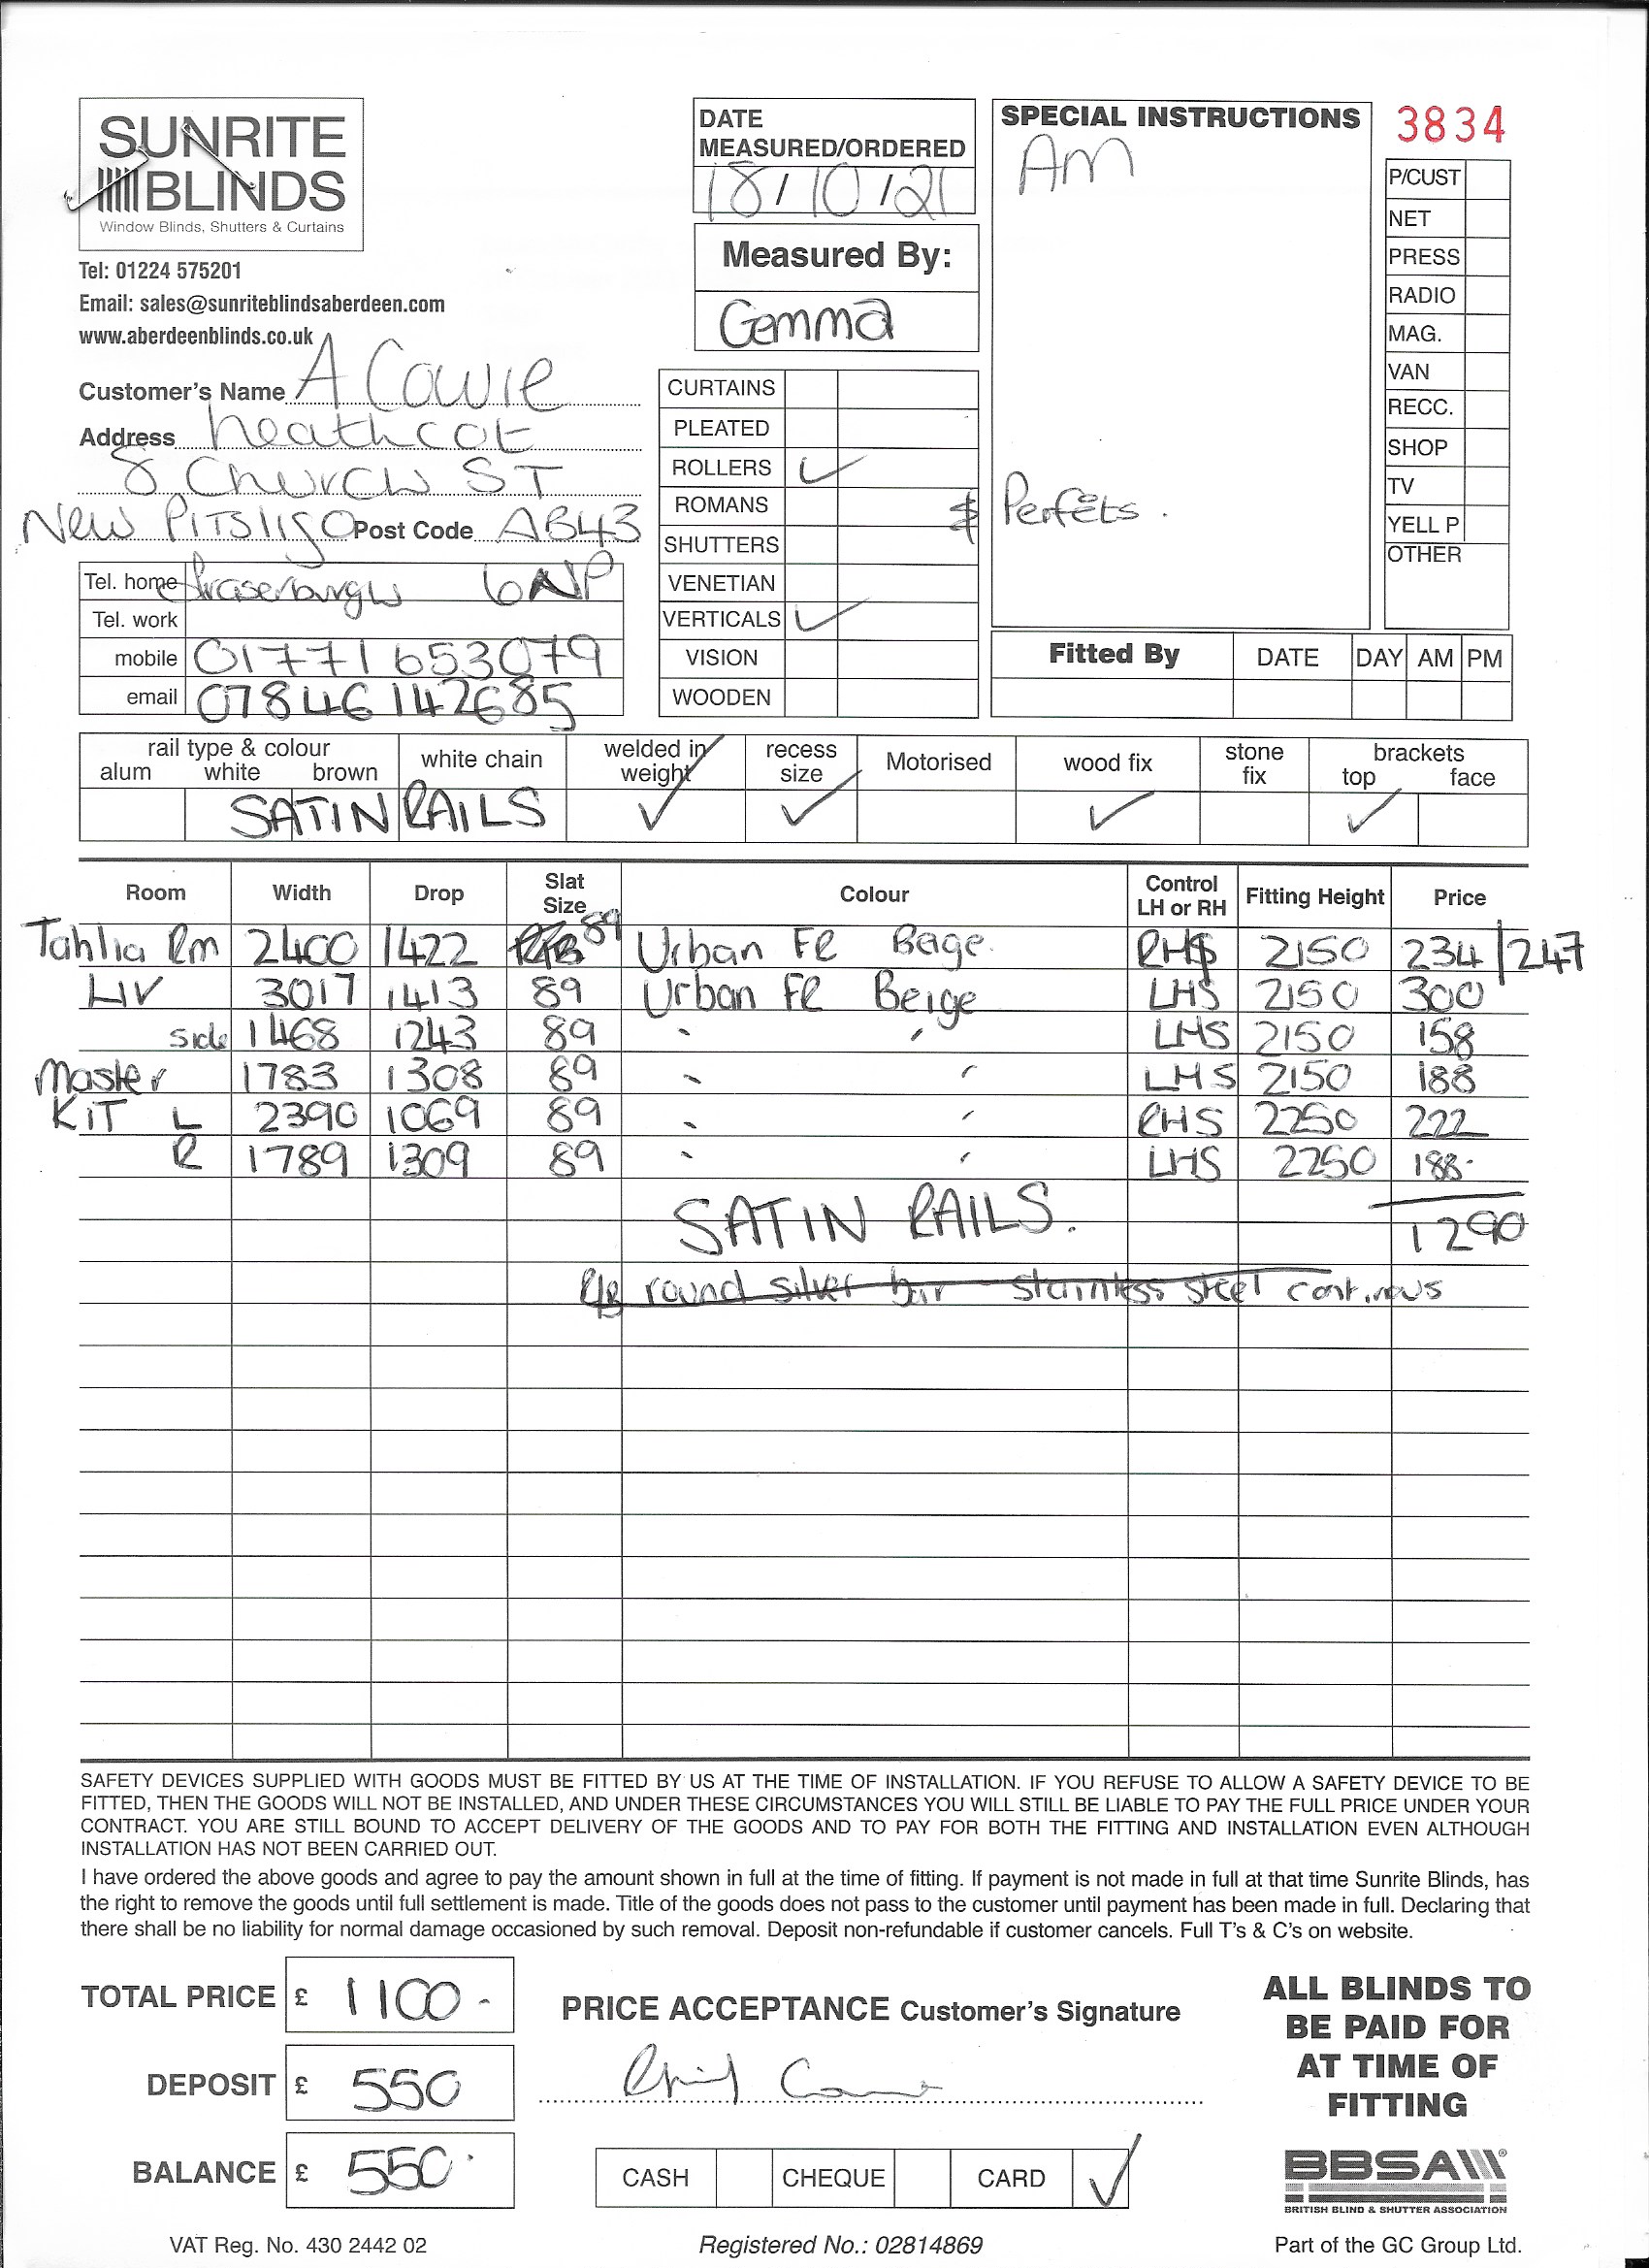 SUNRITE
BLINDS
Window Blinds, Shutters & Curtains
Tel: 01224 575201
Email: sales@sunriteblindsaberdeen.com
www.aberdeenblinds.co.uk
Customer's Name A Cowie
Address heathcot
8 Church ST
New PITSligo Post Code AB43
Tel. home fraserburgh 6NP
Tel. work
mobile 01771 653079
email 07846 142685
DATE
MEASURED/ORDERED
18/10/21
Measured By:
Gemma
CURTAINS
PLEATED
ROLLERS ✓
ROMANS
SHUTTERS
VENETIAN
VERTICALS ✓
VISION
WOODEN
SPECIAL INSTRUCTIONS
AM
Perfets.
3834
P/CUST
NET
PRESS
RADIO
MAG.
VAN
RECC.
SHOP
TV
YELL P
OTHER
Fitted By DATE DAY AM PM
rail type & colour white chain welded in weight recess size Motorised wood fix stone fix brackets
alum white brown top face
SATIN RAILS ✓ ✓ ✓ ✓
Room Width Drop Slat Size Colour Control LH or RH Fitting Height Price
Tahlia Rm 2400 1422 89 Urban FR Bage. RHS 2150 234/247
LIV 3017 1413 89 Urban FR Beige LHS 2150 300
side 1468 1243 89 " " LHS 2150 158
Master 1783 1308 89 " " LHS 2150 188
KIT L 2390 1069 89 " " RHS 2250 222
R 1789 1309 89 " " LHS 2250 188-
SATIN RAILS. 1290
round silver bar - stainless steel continous
SAFETY DEVICES SUPPLIED WITH GOODS MUST BE FITTED BY US AT THE TIME OF INSTALLATION. IF YOU REFUSE TO ALLOW A SAFETY DEVICE TO BE
FITTED, THEN THE GOODS WILL NOT BE INSTALLED, AND UNDER THESE CIRCUMSTANCES YOU WILL STILL BE LIABLE TO PAY THE FULL PRICE UNDER YOUR
CONTRACT. YOU ARE STILL BOUND TO ACCEPT DELIVERY OF THE GOODS AND TO PAY FOR BOTH THE FITTING AND INSTALLATION EVEN ALTHOUGH
INSTALLATION HAS NOT BEEN CARRIED OUT.
I have ordered the above goods and agree to pay the amount shown in full at the time of fitting. If payment is not made in full at that time Sunrite Blinds, has
the right to remove the goods until full settlement is made. Title of the goods does not pass to the customer until payment has been made in full. Declaring that
there shall be no liability for normal damage occasioned by such removal. Deposit non-refundable if customer cancels. Full T's & C's on website.
TOTAL PRICE £ 1100-
DEPOSIT £ 550
BALANCE £ 550
PRICE ACCEPTANCE Customer's Signature
CASH CHEQUE CARD ✓
ALL BLINDS TO
BE PAID FOR
AT TIME OF
FITTING
BBSA
BRITISH BLIND & SHUTTER ASSOCIATION
VAT Reg. No. 430 2442 02
Registered No.: 02814869
Part of the GC Group Ltd.